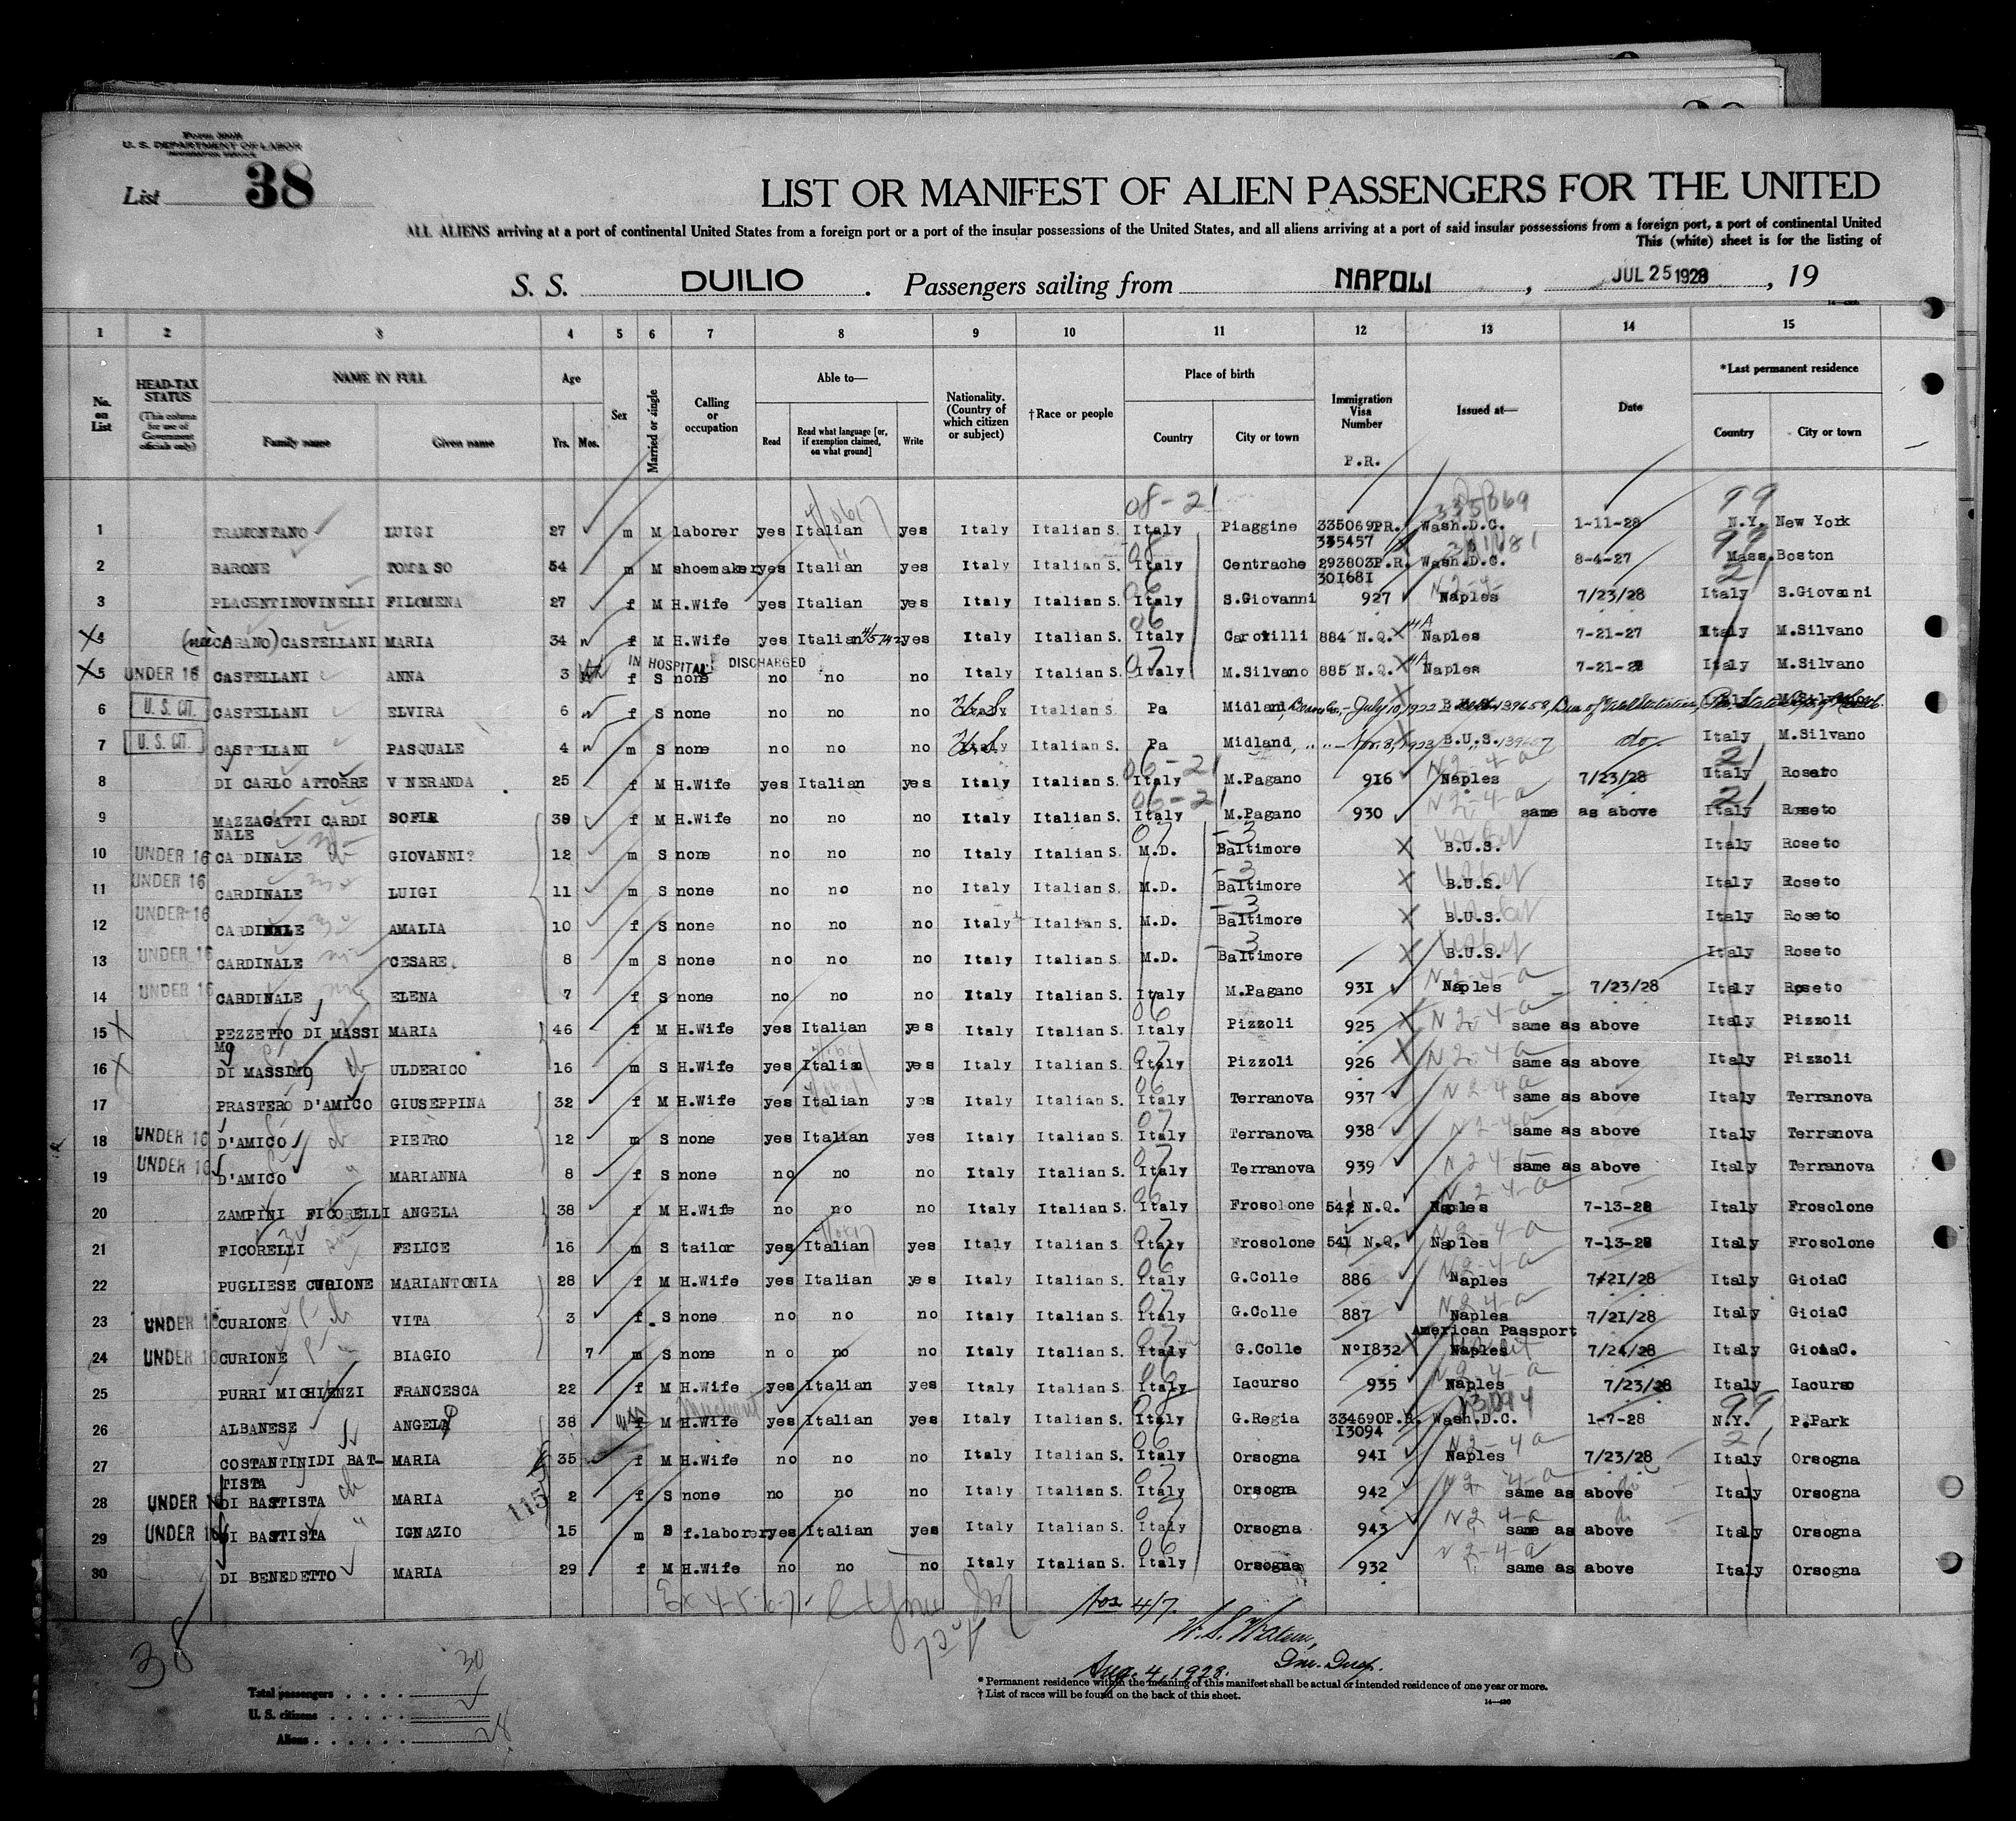 Form 500B
U. S. DEPARTMENT OF LABOR
IMMIGRATION SERVICE
List 38
LIST OR MANIFEST OF ALIEN PASSENGERS FOR THE UNITED
ALL ALIENS arriving at a port of continental United States from a foreign port or a port of the insular possessions of the United States, and all aliens arriving at a port of said insular possessions from a foreign port, a port of continental United
This (white) sheet is for the listing of
S. S. DUILIO. Passengers sailing from NAPOLI, JUL 25 1928, 19
1 2 3 4 5 6 7 8 9 10 11 12 13 14 15
No. on List HEAD-TAX STATUS (This column for use of Government officials only) NAME IN FULL Family name Given name Age Yrs. Mos. Sex Married or single Calling or occupation Able to— Read Read what language [or, if exemption claimed, on what ground] Write Nationality. (Country of which citizen or subject) †Race or people Place of birth Country City or town Immigration Visa Number P.R. Issued at— Date *Last permanent residence Country City or town
1 TRAMONTANO LUIGI 27 m M laborer yes Italian yes Italy Italian S. 08-21 Italy Piaggine 335069PR. 335457 Wash.D.C. 335069 1-11-28 99 N.Y. New York
2 BARONE TOMMASO 54 m M shoemaker yes Italian yes Italy Italian S. Italy Centrache 293803P.R. 301681 Wash.D.C. 8-4-27 99 Mass. Boston
3 PLACENTINOVINELLI FILOMENA 27 f M H.Wife yes Italian yes Italy Italian S. 06 Italy S.Giovanni 927 Naples 7/23/28 21 Italy S.Giovanni
X4 (née CARANO) CASTELLANI MARIA 34 f M H.Wife yes Italian yes Italy Italian S. 06 Italy Carovilli 884 N.Q. Naples 7-21-27 Italy M.Silvano
X5 UNDER 16 CASTELLANI ANNA 3 IN HOSPITAL DISCHARGED f S none no no no Italy Italian S. 07 Italy M.Silvano 885 N.Q. Naples 7-21-28 Italy M.Silvano
6 U. S. CIT. CASTELLANI ELVIRA 6 f S none no no no U.S. Italian S. Pa Midland, Born on - July 10, 1922 139658, Bur. of Vital Statistics, Pa. State Dept. of Health
7 U. S. CIT. CASTELLANI PASQUALE 4 m S none no no no U.S. Italian S. Pa Midland, " " - Nov. 8, 1923 B.U.S. 139657 do. Italy M.Silvano
8 DI CARLO ATTORRE V NERANDA 25 f M H.Wife yes Italian yes Italy Italian S. 06-21 Italy M.Pagano 916 N 2-4-a Naples 7/23/28 21 Italy Roseto
9 MAZZAGATTI CARDI NALE SOFIA 39 f M H.Wife no no no Italy Italian S. 06-21 Italy M.Pagano 930 N 2-4-a same as above 21 Italy Roseto
10 UNDER 16 CA DINALE GIOVANNI? 12 m S none no no no Italy Italian S. 07 M.D. -3 Baltimore B.U.S. Italy Roseto
11 UNDER 16 CARDINALE LUIGI 11 m S none no no no Italy Italian S. M.D. -3 Baltimore B.U.S. Italy Roseto
12 UNDER 16 CARDINALE AMALIA 10 f S none no no no Italy Italian S. M.D. -3 Baltimore B.U.S. Italy Roseto
13 UNDER 16 CARDINALE CESARE. 8 m S none no no no Italy Italian S. M.D. -3 Baltimore B.U.S. Italy Roseto
14 UNDER 16 CARDINALE ELENA 7 f S none no no no Italy Italian S. Italy M.Pagano 931 N 2-4-a Naples 7/23/28 Italy Roseto
15 X PEZZETTO DI MASSI MO MARIA 46 f M H.Wife yes Italian yes Italy Italian S. 06 Italy Pizzoli 925 N 2-4-a same as above Italy Pizzoli
16 X DI MASSIMO ULDERICO 16 m S H.Wife yes Italian yes Italy Italian S. 07 Italy Pizzoli 926 N 2-4-a same as above Italy Pizzoli
17 PRASTERO D'AMICO GIUSEPPINA 32 f M H.Wife yes Italian yes Italy Italian S. 06 Italy Terranova 937 N 2-4-a same as above Italy Terranova
18 UNDER 16 D'AMICO PIETRO 12 m S none yes Italian yes Italy Italian S. 07 Italy Terranova 938 N 2-4-a same as above Italy Terranova
19 UNDER 16 D'AMICO MARIANNA 8 f S none no no no Italy Italian S. 07 Italy Terranova 939 N 2-4-a same as above Italy Terranova
20 ZAMPINI FICORELLI ANGELA 38 f M H.Wife no no no Italy Italian S. 06 Italy Frosolone 542 N.Q. N 2-4-a Naples 7-13-28 Italy Frosolone
21 FICORELLI FELICE 16 m S tailor yes Italian yes Italy Italian S. 07 Italy Frosolone 541 N.Q. N 2-4-a Naples 7-13-28 Italy Frosolone
22 PUGLIESE CURIONE MARIANTONIA 28 f M H.Wife yes Italian yes Italy Italian S. 06 Italy G.Colle 886 N 2-4-a Naples 7/21/28 Italy GioiaC
23 UNDER 16 CURIONE VITA 3 f S none no no no Italy Italian S. 07 Italy G.Colle 887 N 2-4-a Naples 7/21/28 Italy GioiaC
24 UNDER 16 CURIONE BIAGIO 7 m S none no no no Italy Italian S. 07 Italy G.Colle N°1832 American Passport Naples 7/24/28 Italy GioiaC.
25 PURRI MICHIENZI FRANCESCA 22 f M H.Wife yes Italian yes Italy Italian S. 06 Italy Iacurso 935 N 2-4-a Naples 7/23/28 Italy Iacurso
26 ALBANESE ANGELO 38 M H.Wife yes Italian yes Italy Italian S. Italy G.Regia 334690P.R. 13094 Wash.D.C. 13094 1-7-28 99 N.Y. P.Park
27 COSTANTINIDI BAT- TISTA MARIA 35 f M H.Wife no no no Italy Italian S. 06 Italy Orsogna 941 N 2-4-a Naples 7/23/28 21 Italy Orsogna
28 UNDER 16 DI BASTISTA MARIA 2 f S none no no no Italy Italian S. 07 Italy Orsogna 942 N 2-4-a same as above Italy Orsogna
115
29 UNDER 16 DI BASTISTA IGNAZIO 15 m S f.laborer yes Italian yes Italy Italian S. 07 Italy Orsogna 943 N 2-4-a same as above Italy Orsogna
30 DI BENEDETTO MARIA 29 f M H.Wife no no no Italy Italian S. 06 Italy Orsogna 932 N 2-4-a same as above Italy Orsogna
Ex 4-5-6-7.
Nos. 4/7.
W. S. Watson,
Imm. Insp.
Aug. 4, 1928.
38
Total passengers . . . . 30
U. S. citizens . . . . .
Aliens . . . . . . 28
* Permanent residence within the meaning of this manifest shall be actual or intended residence of one year or more.
† List of races will be found on the back of this sheet.
14—430